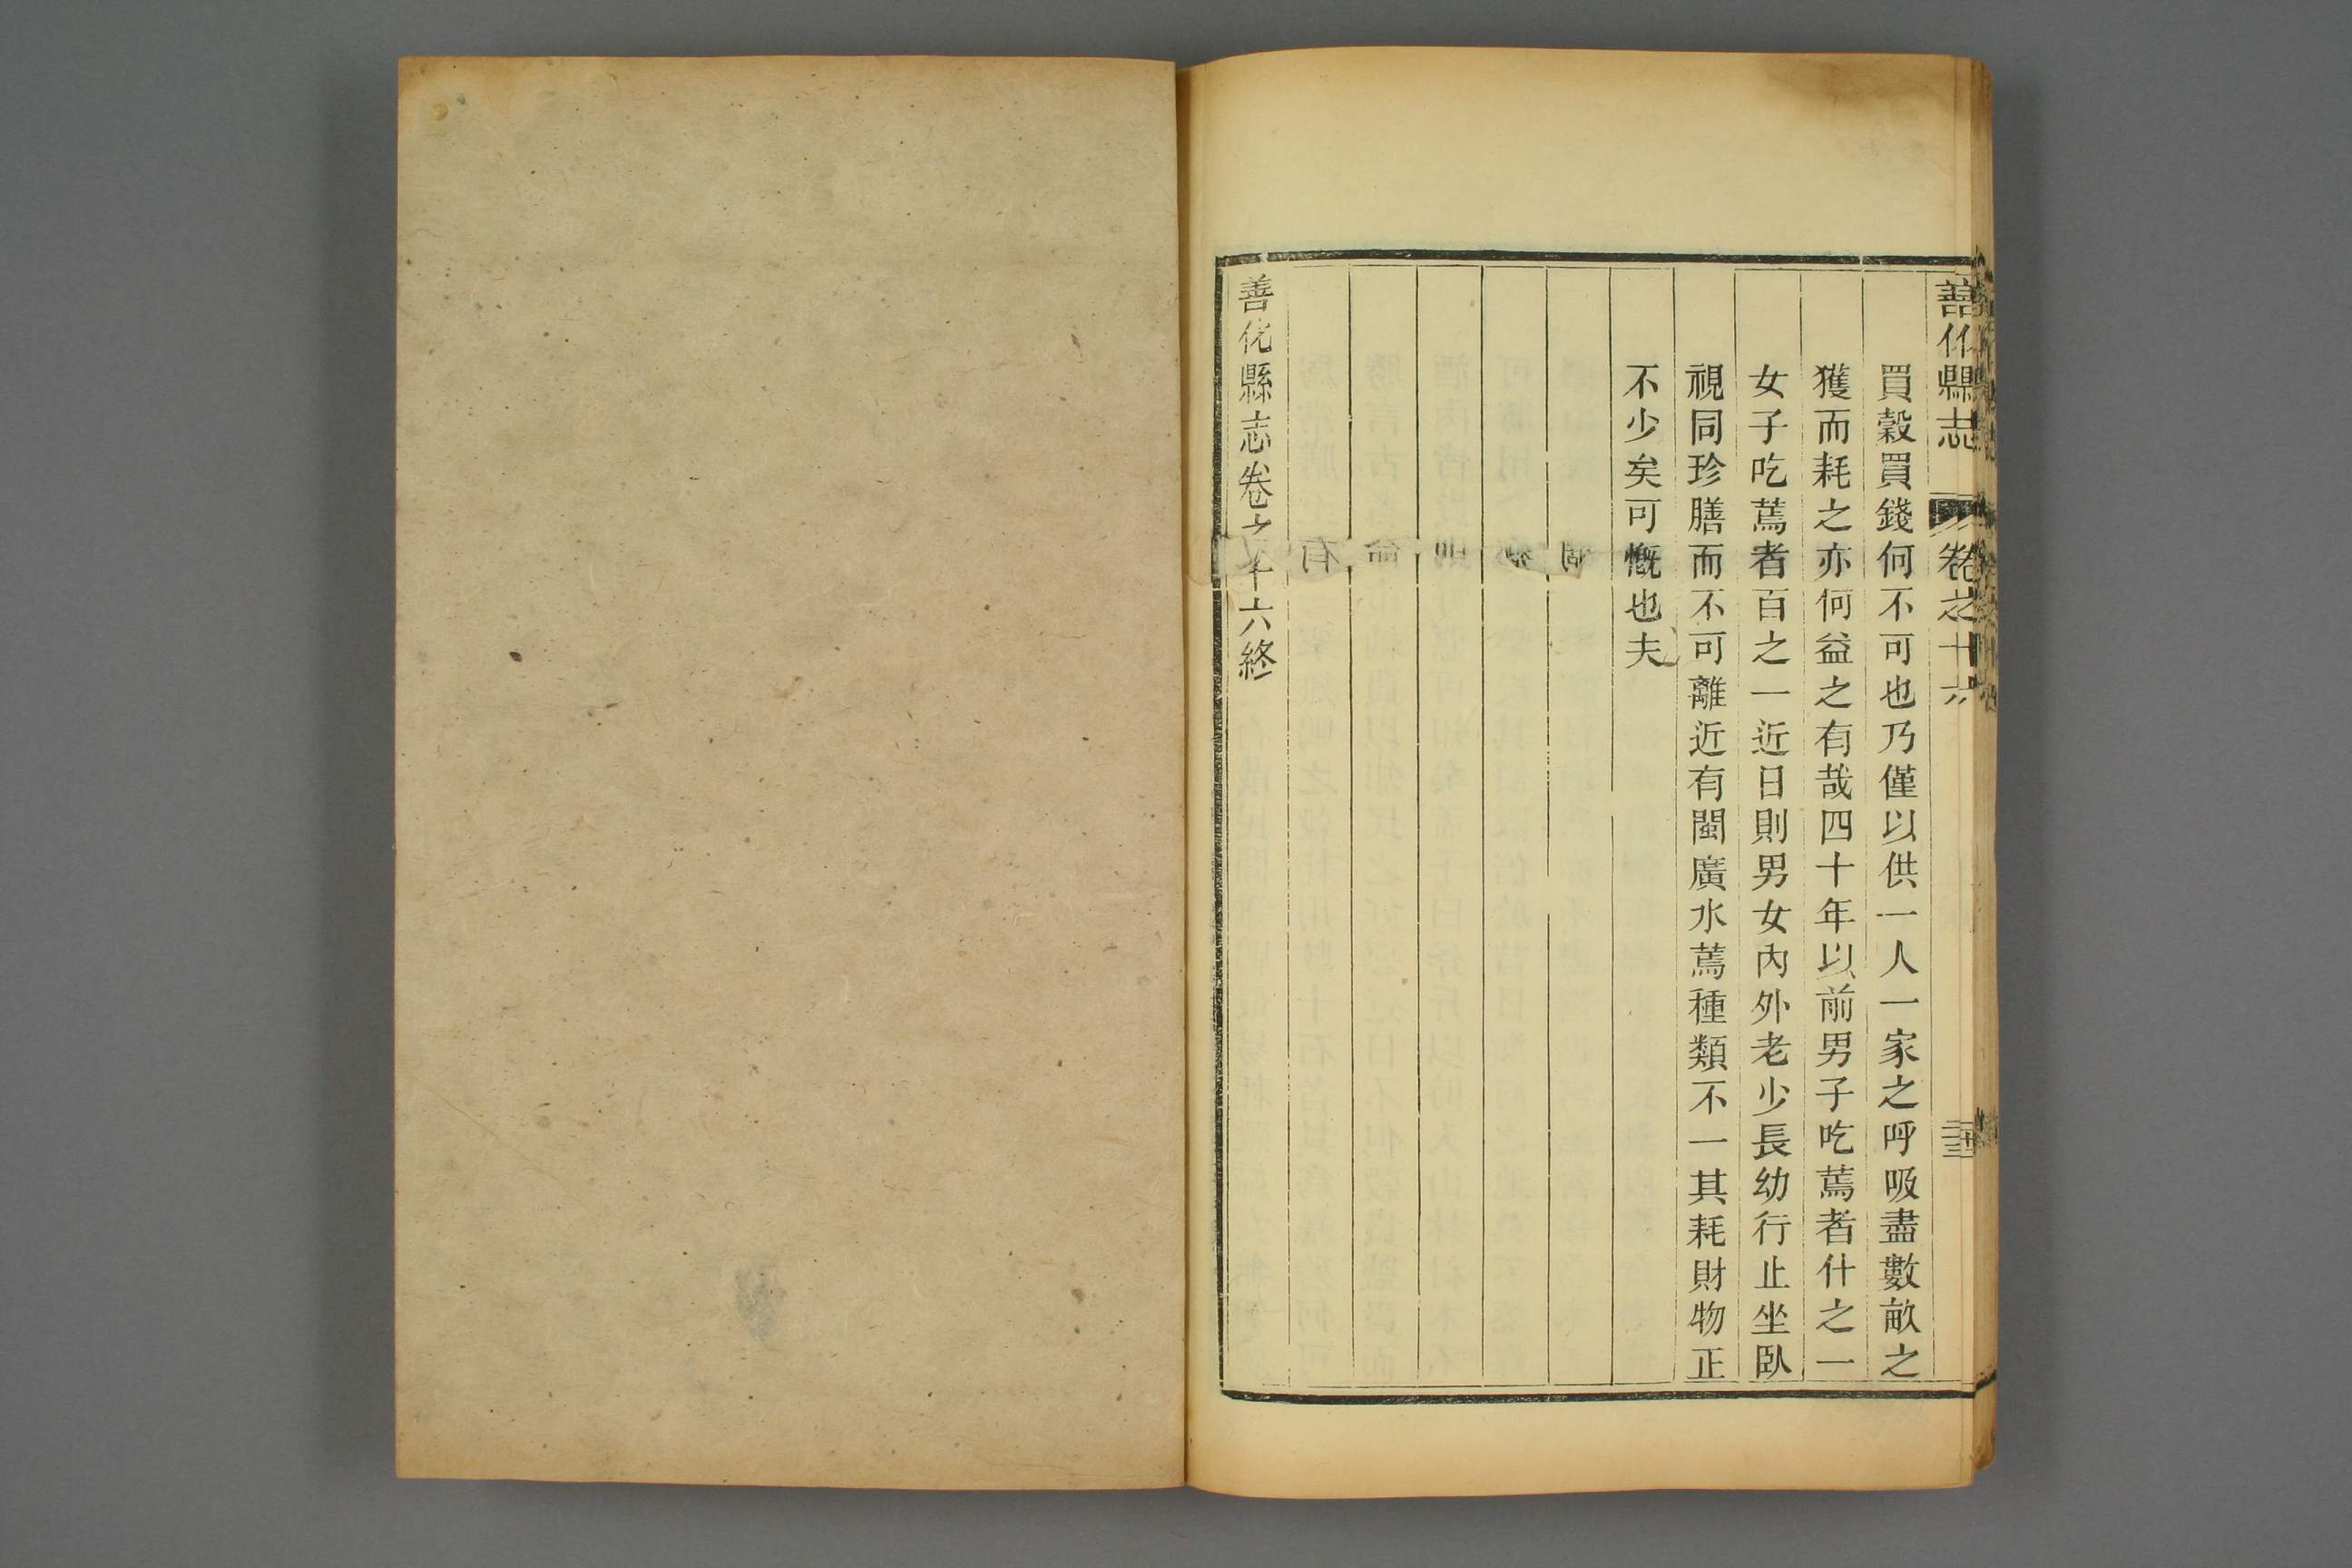 善化縣志 卷之十六 三十三
買穀買錢何不可也乃僅以供一人一家之呼吸盡數畝之
獲而耗之亦何益之有哉四十年以前男子吃蔫者什之一
女子吃蔫者百之一近日則男女內外老少長幼行止坐臥
視同珍膳而不可離近有閩廣水蔫種類不一其耗財物正
不少矣可慨也夫
善化縣志卷之十六終